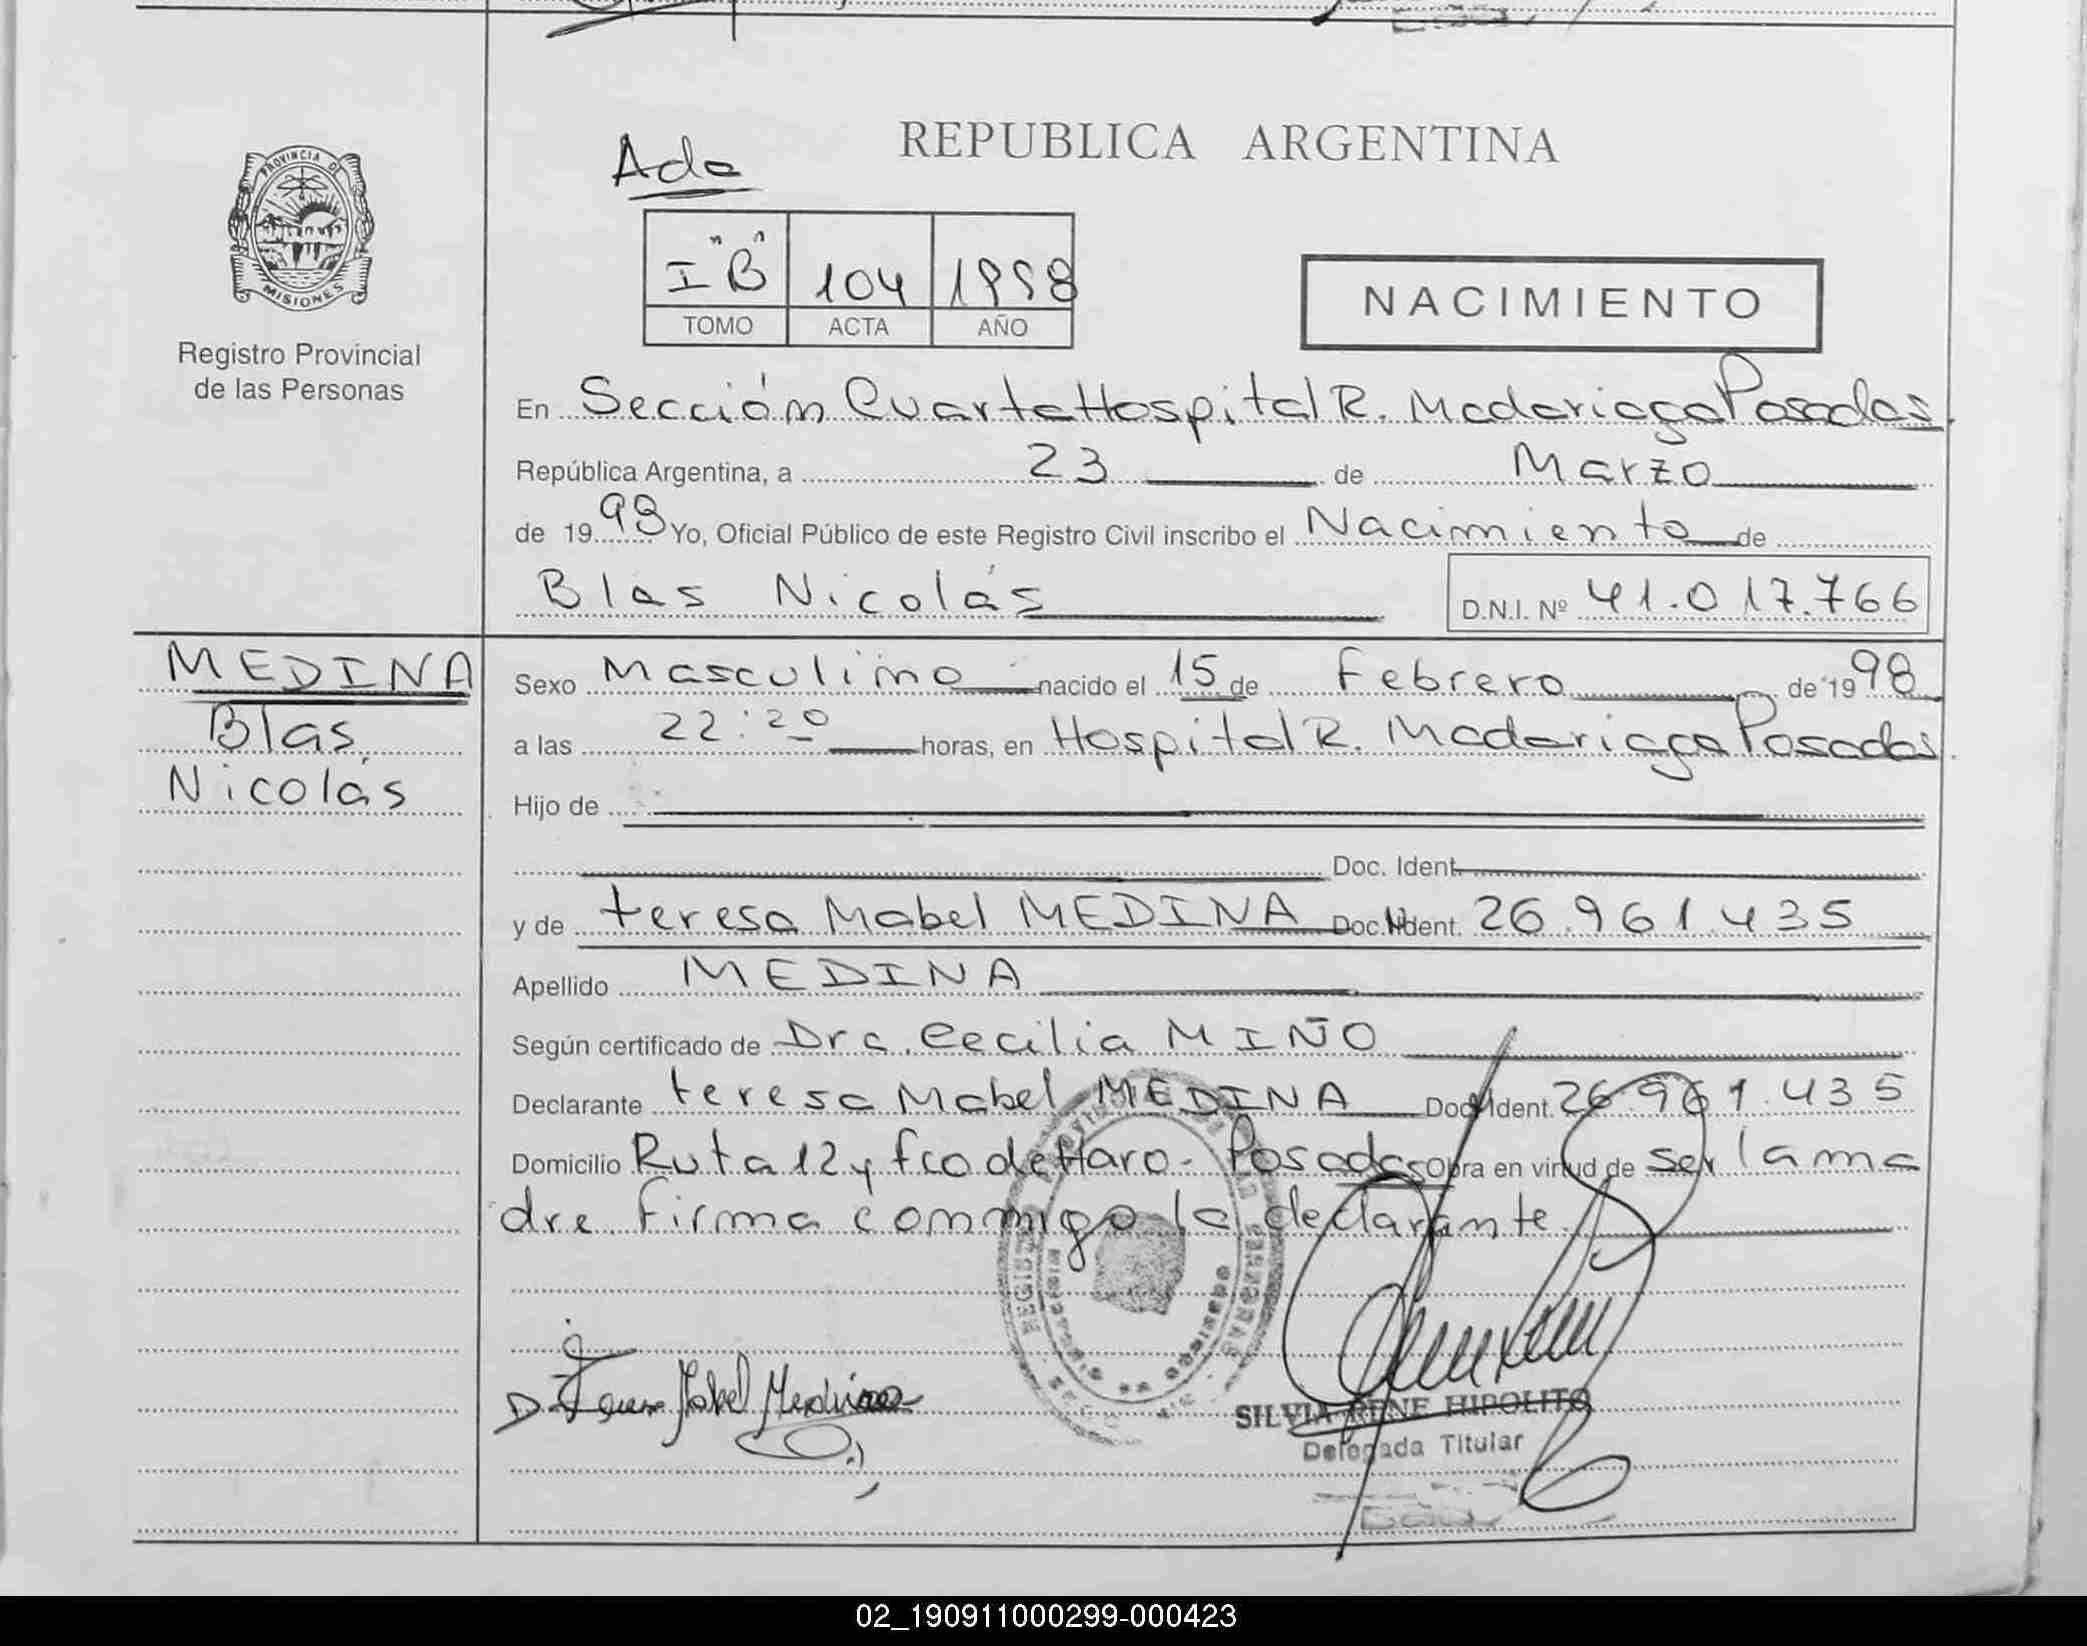 REPUBLICA ARGENTINA
Ada
PROVINCIA DE
MISIONES
"
"
I B 104 1998
TOMO ACTA AÑO
NACIMIENTO
Registro Provincial
de las Personas
En Sección Cuarta Hospital R. Madariaga Posadas.
República Argentina, a 23 de Marzo
de 1998 Yo, Oficial Público de este Registro Civil inscribo el Nacimiento de
Blas Nicolás D.N.I. Nº 41.017.766
MEDINA
Blas
Nicolás
Sexo Masculino nacido el 15 de Febrero de 1998
a las 22:20 horas, en Hospital R. Madariaga Posadas.
Hijo de
Doc. Ident.
y de teresa Mabel MEDINA Doc. Ident. 26.961.435
Apellido MEDINA
Según certificado de Dra. Cecilia MIÑO
Declarante teresa Mabel MEDINA Doc. Ident. 26.961.435
Domicilio Ruta 12 y fco de Haro - Posadas Obra en virtud de ser la ma
dre firma conmigo la declarante.
Mabel Medina
SILVIA RENE HIPOLITO
Delegada Titular
02_190911000299-000423